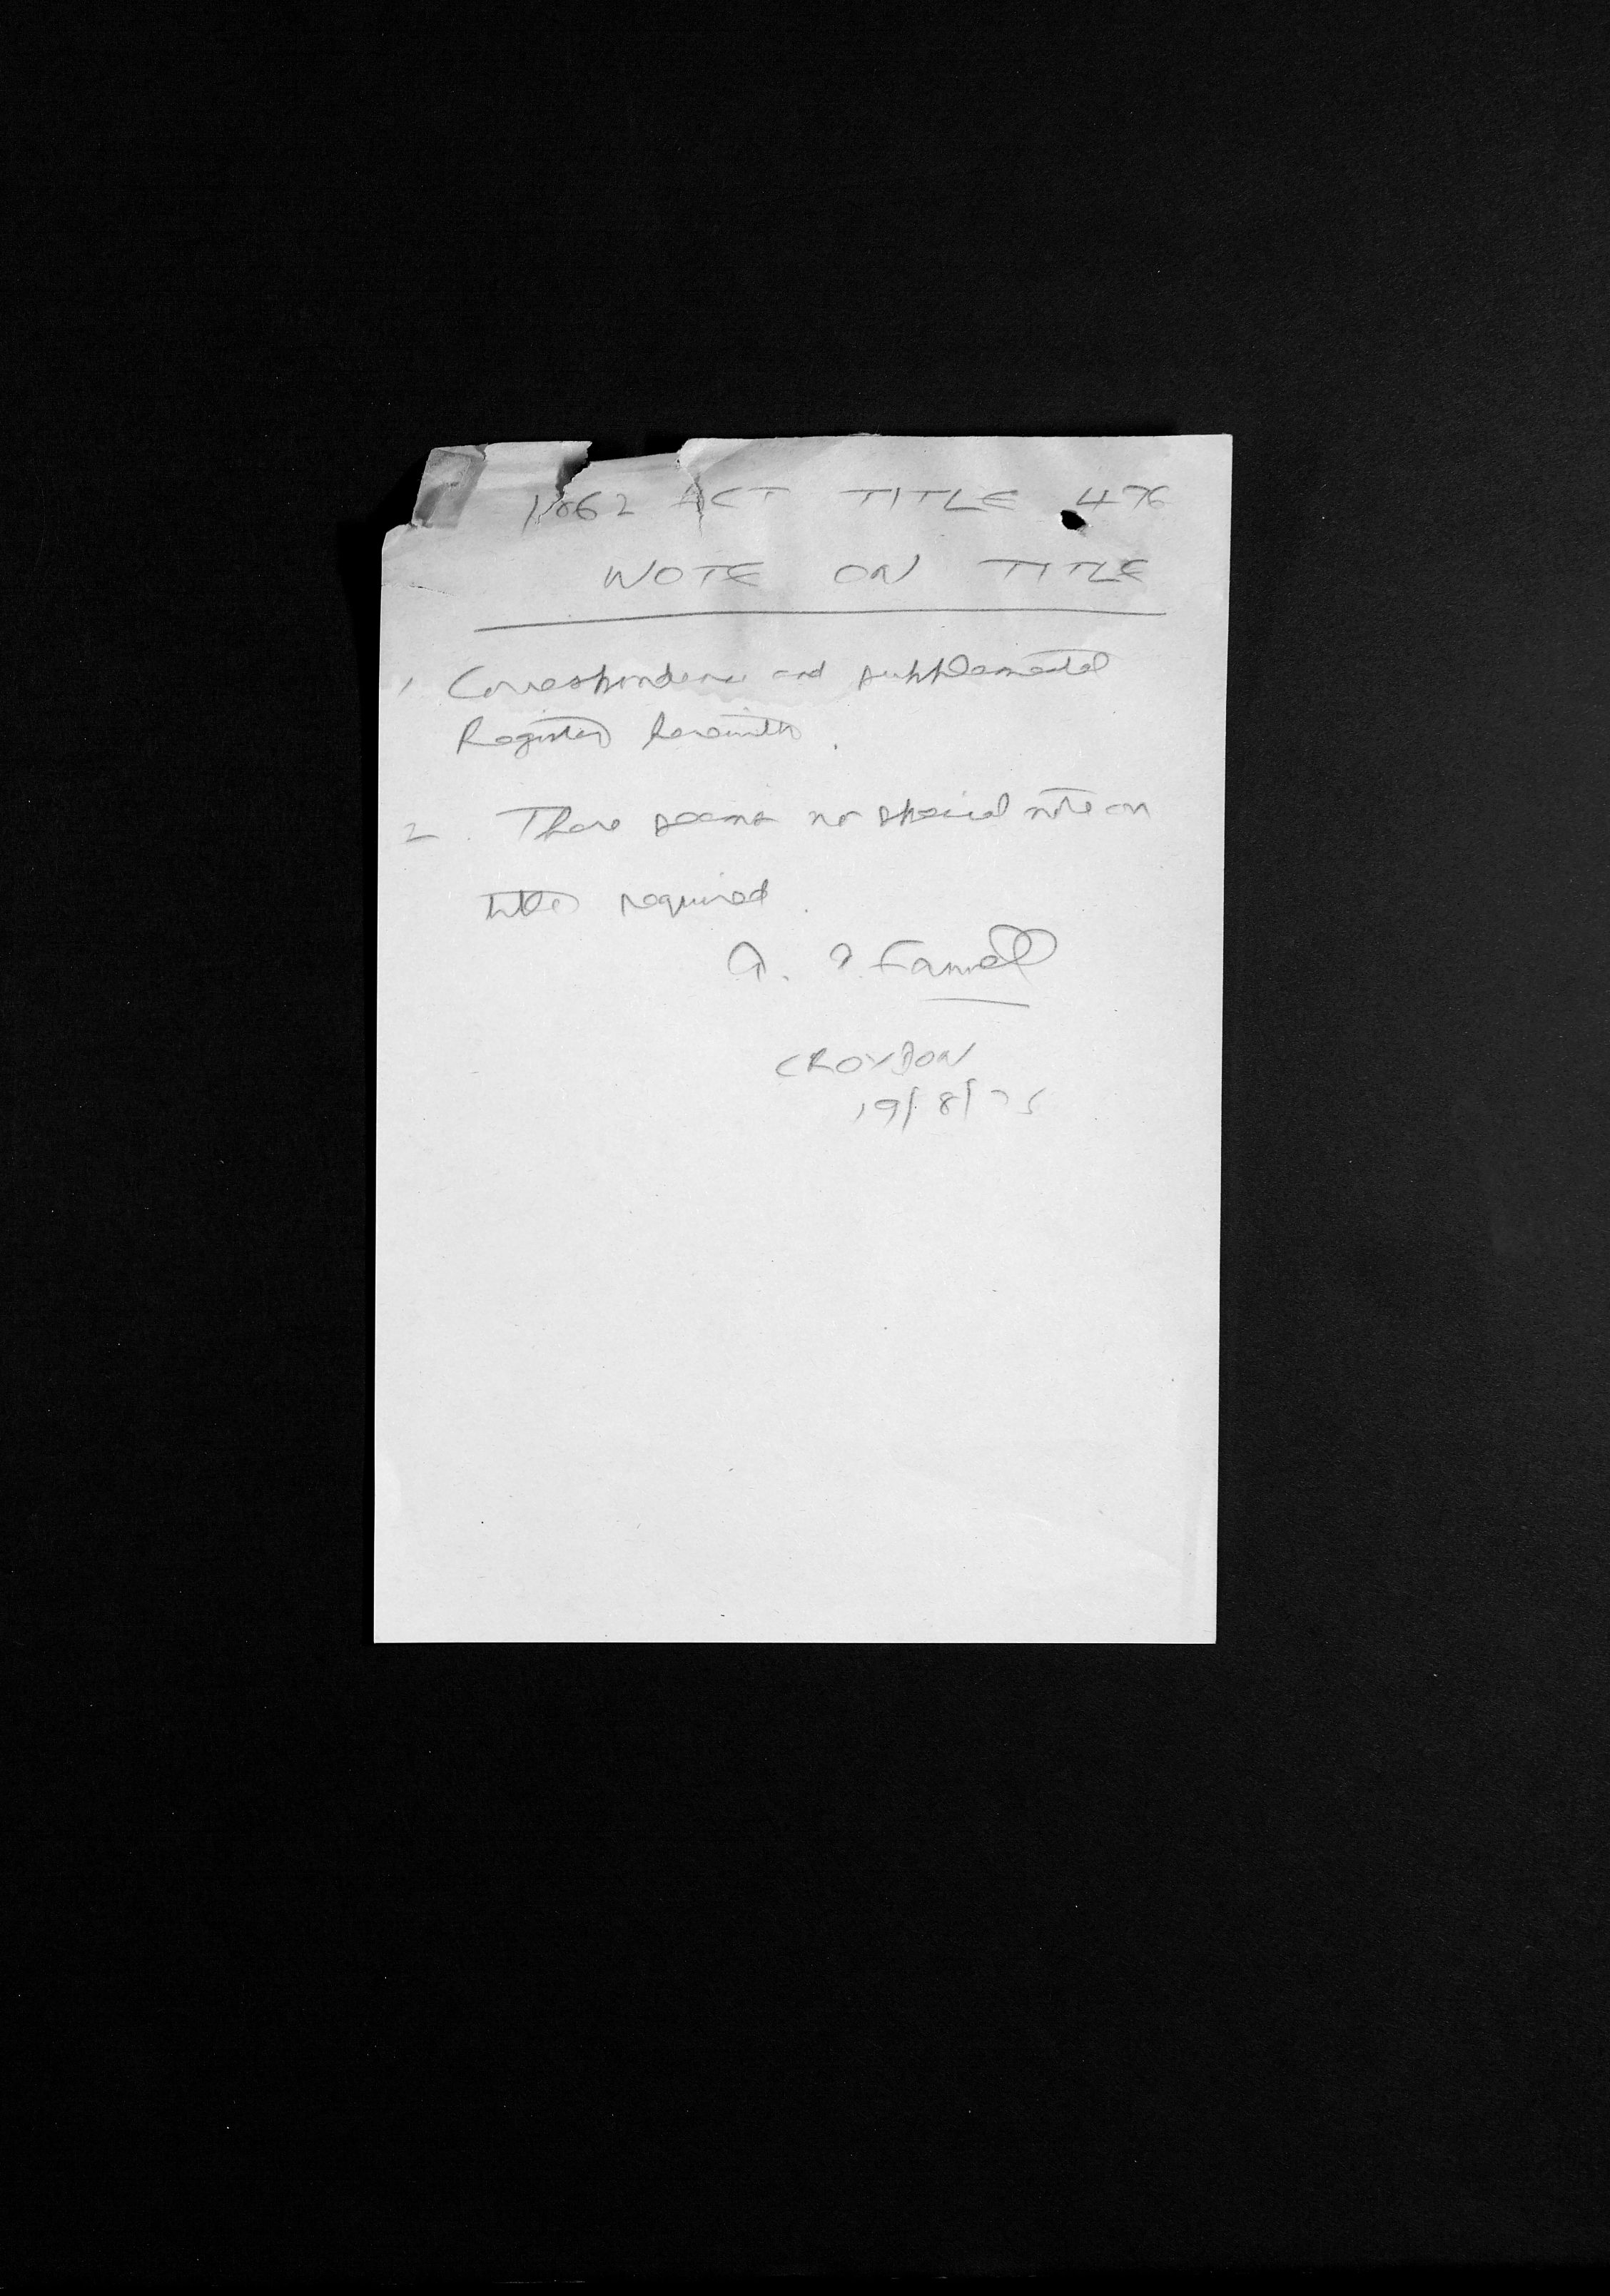 1862 ACT TITLE 476
NOTE ON TITLE
1 Correspondence and supplemental
Register herewith.
2. There seems no special note on
title required.
A. Farnell
CROYDON
19/8/75